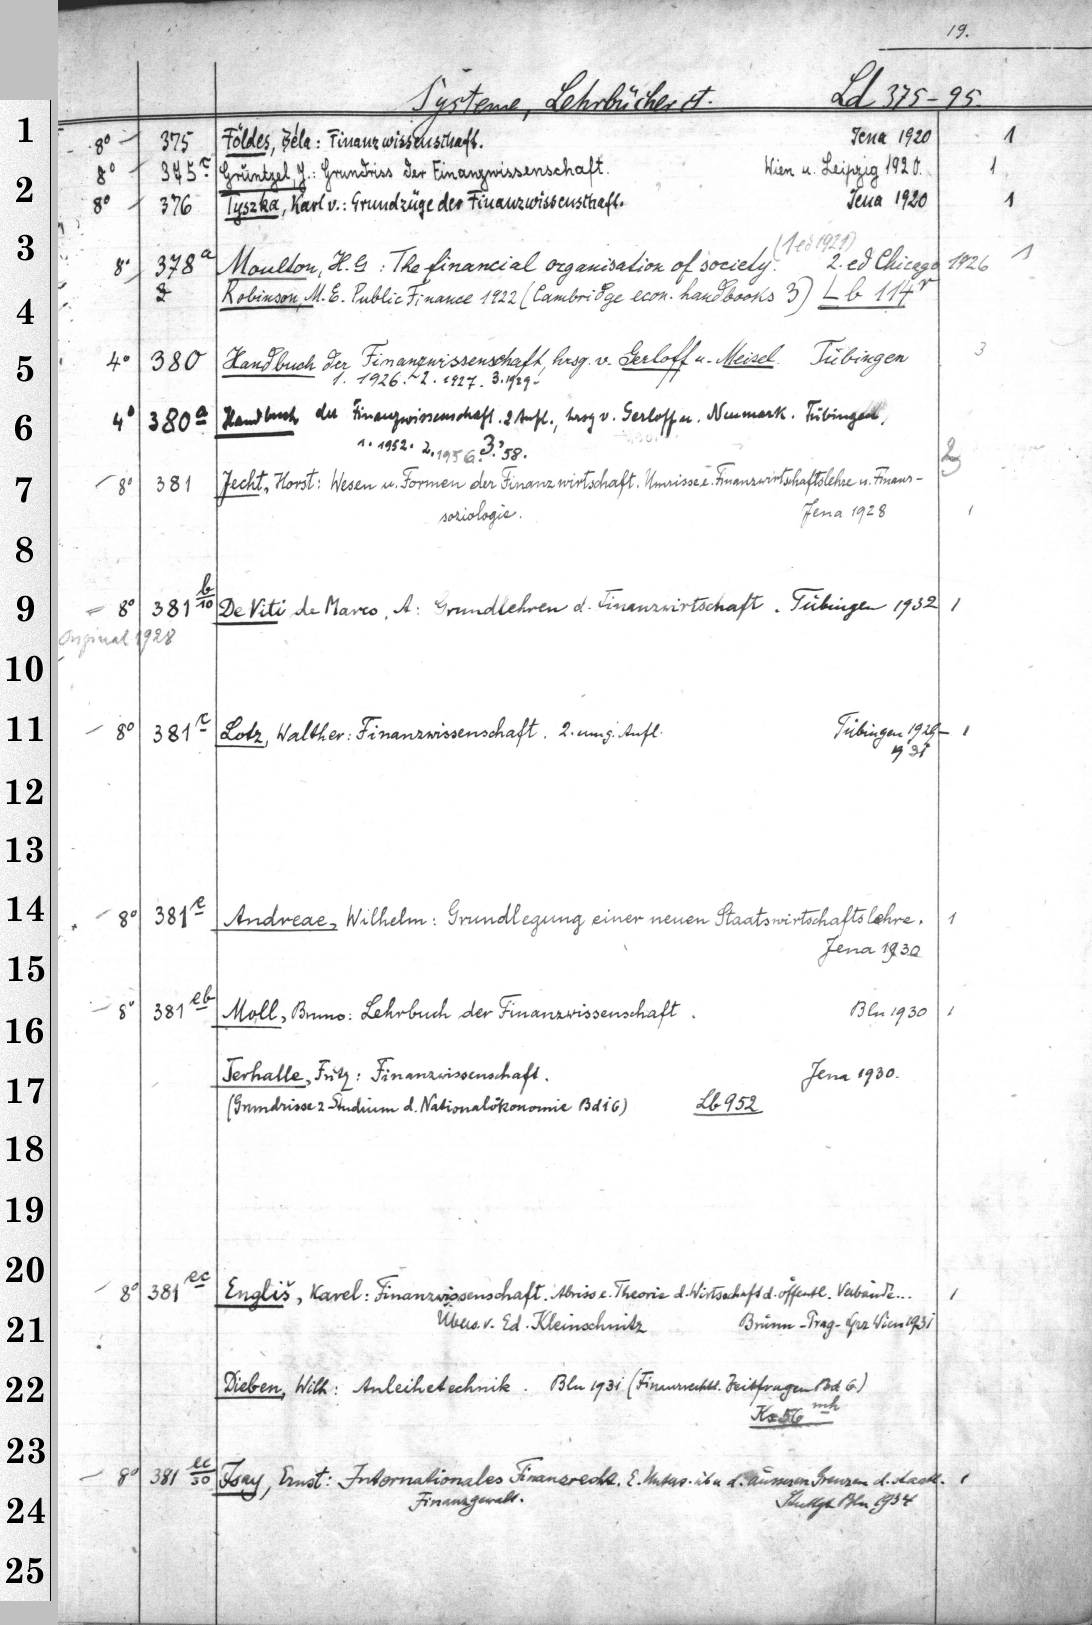 19.
Systeme, Lehrbücher et. Ld 375-95.
1
8° 375 Földes, Béla: Finanzwissenschaft. Jena 1920 1
8° 375c Gruntzel, J.: Grundriss der Finanzwissenschaft. Wien u. Leipzig 1920. 1
2
8° 376 Tyszka, Karl v.: Grundzüge der Finanzwissenschaft. Jena 1920 1
3
(1 ed 1921)
8° 378a Moulton, H. G: The financial organisation of society. 2. ed Chicago 1926 1
Robinson, M. E. Public Finance 1922 (Cambridge econ. handbooks 3) Lb 114r
4
5
4° 380 Handbuch der Finanzwissenschaft, hrsg. v. Gerloff u. Meisel. Tübingen 3
1. 1926. 2. 1927. 3. 1929-
6
4° 380a Handbuch der Finanzwissenschaft. 2 Aufl., hrsg v. Gerloff u. Neumark. Tübingen,
1. 1952. 2. 1956. 3. '58.
7
8° 381 Jecht, Horst: Wesen u. Formen der Finanzwirtschaft. Umrisse e. Finanzwirtschaftslehre u. Finanz-
soziologie. Jena 1928 1
8
9
8° 381 b/10 De Viti de Marco, A: Grundlehren d. Finanzwirtschaft. Tübingen 1932 1
Original 1928
10
11
8° 381c Lotz, Walther: Finanzwissenschaft. 2. umg. Aufl. Tübingen 1929- 1
1931
12
13
14
8° 381e Andreae, Wilhelm: Grundlegung einer neuen Staatswirtschaftslehre. 1
Jena 1930
15
8° 381eb Moll, Bruno: Lehrbuch der Finanzwissenschaft. Bln 1930 1
16
Terhalle, Fritz: Finanzwissenschaft. Jena 1930.
17
(Grundrisse z Studium d. Nationalökonomie Bd 16) Lb 952
18
19
20
8° 381ec Engliš, Karel: Finanzwissenschaft. Abriss e. Theorie d. Wirtschaft d. öffentl. Verbände... 1
Übers. v. Ed. Kleinschnitz Brünn-Prag-Lpz Wien 1931
21
22
Dieben, Wilh: Anleihetechnik. Bln 1931 (Finanzrechtl. Zeitfragen Bd 6)
Kx 56 mh
23
8° 381 ec/50 Isay, Ernst: Internationales Finanzrecht. E. Unters. üb d. äusseren Grenzen d. staatl. 1
Finanzgewalt. Stuttgt Bln 1934
24
25